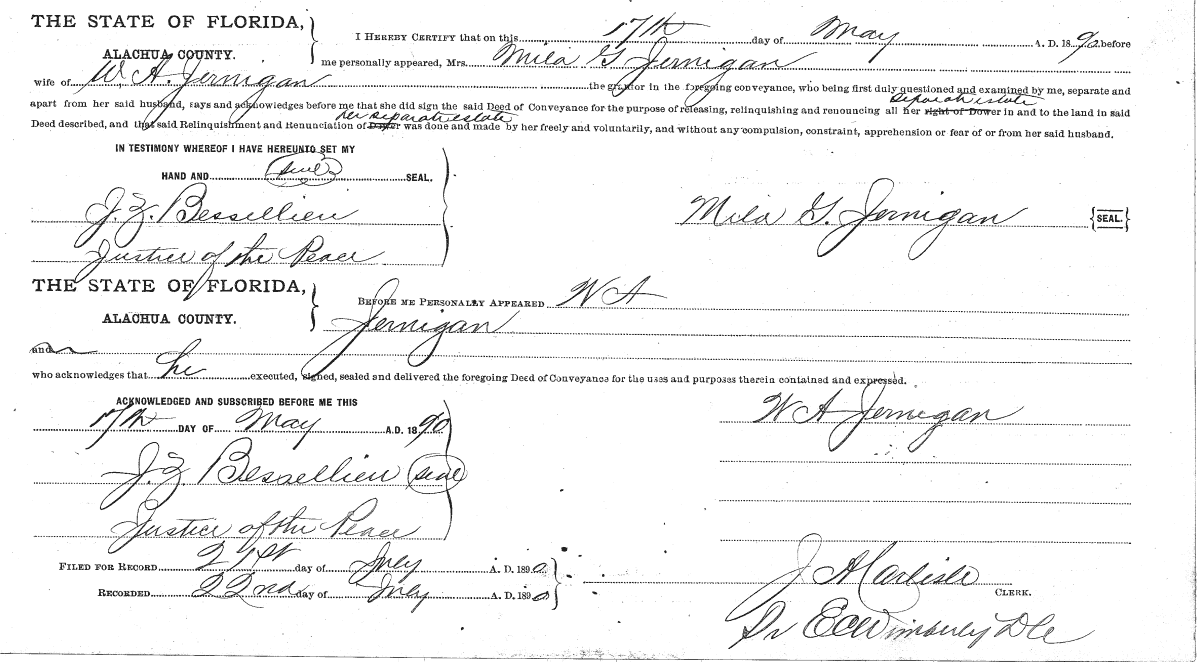 THE STATE OF FLORIDA,
ALACHUA COUNTY.
I HEREBY CERTIFY that on this 17th day of May A. D. 1890 before
me personally appeared, Mrs. Mila G Jernigan
wife of W. A. Jernigan the grantor in the foregoing conveyance, who being first duly questioned and examined by me, separate and
separate estate
apart from her said husband, says and acknowledges before me that she did sign the said Deed of Conveyance for the purpose of releasing, relinquishing and renouncing all her right of Dower in and to the land in said
her separate estate
Deed described, and that said Relinquishment and Renunciation of Dower was done and made by her freely and voluntarily, and without any compulsion, constraint, apprehension or fear of or from her said husband.
IN TESTIMONY WHEREOF I HAVE HEREUNTO SET MY
HAND AND seal SEAL.
J. Z. Bessellieu
Justice of the Peace
Mila G. Jernigan {SEAL.}
THE STATE OF FLORIDA,
ALACHUA COUNTY.
BEFORE ME PERSONALLY APPEARED W A
Jernigan
and
who acknowledges that he executed, signed, sealed and delivered the foregoing Deed of Conveyance for the uses and purposes therein contained and expressed.
ACKNOWLEDGED AND SUBSCRIBED BEFORE ME THIS
17th DAY OF May A.D. 1890
J. Z. Bessellieu seal
Justice of the Peace
W A Jernigan
FILED FOR RECORD 21st day of July A. D. 1890
RECORDED 22nd day of July A. D. 1890
J A Carlisle
CLERK.
Pr E C Wimberly D C